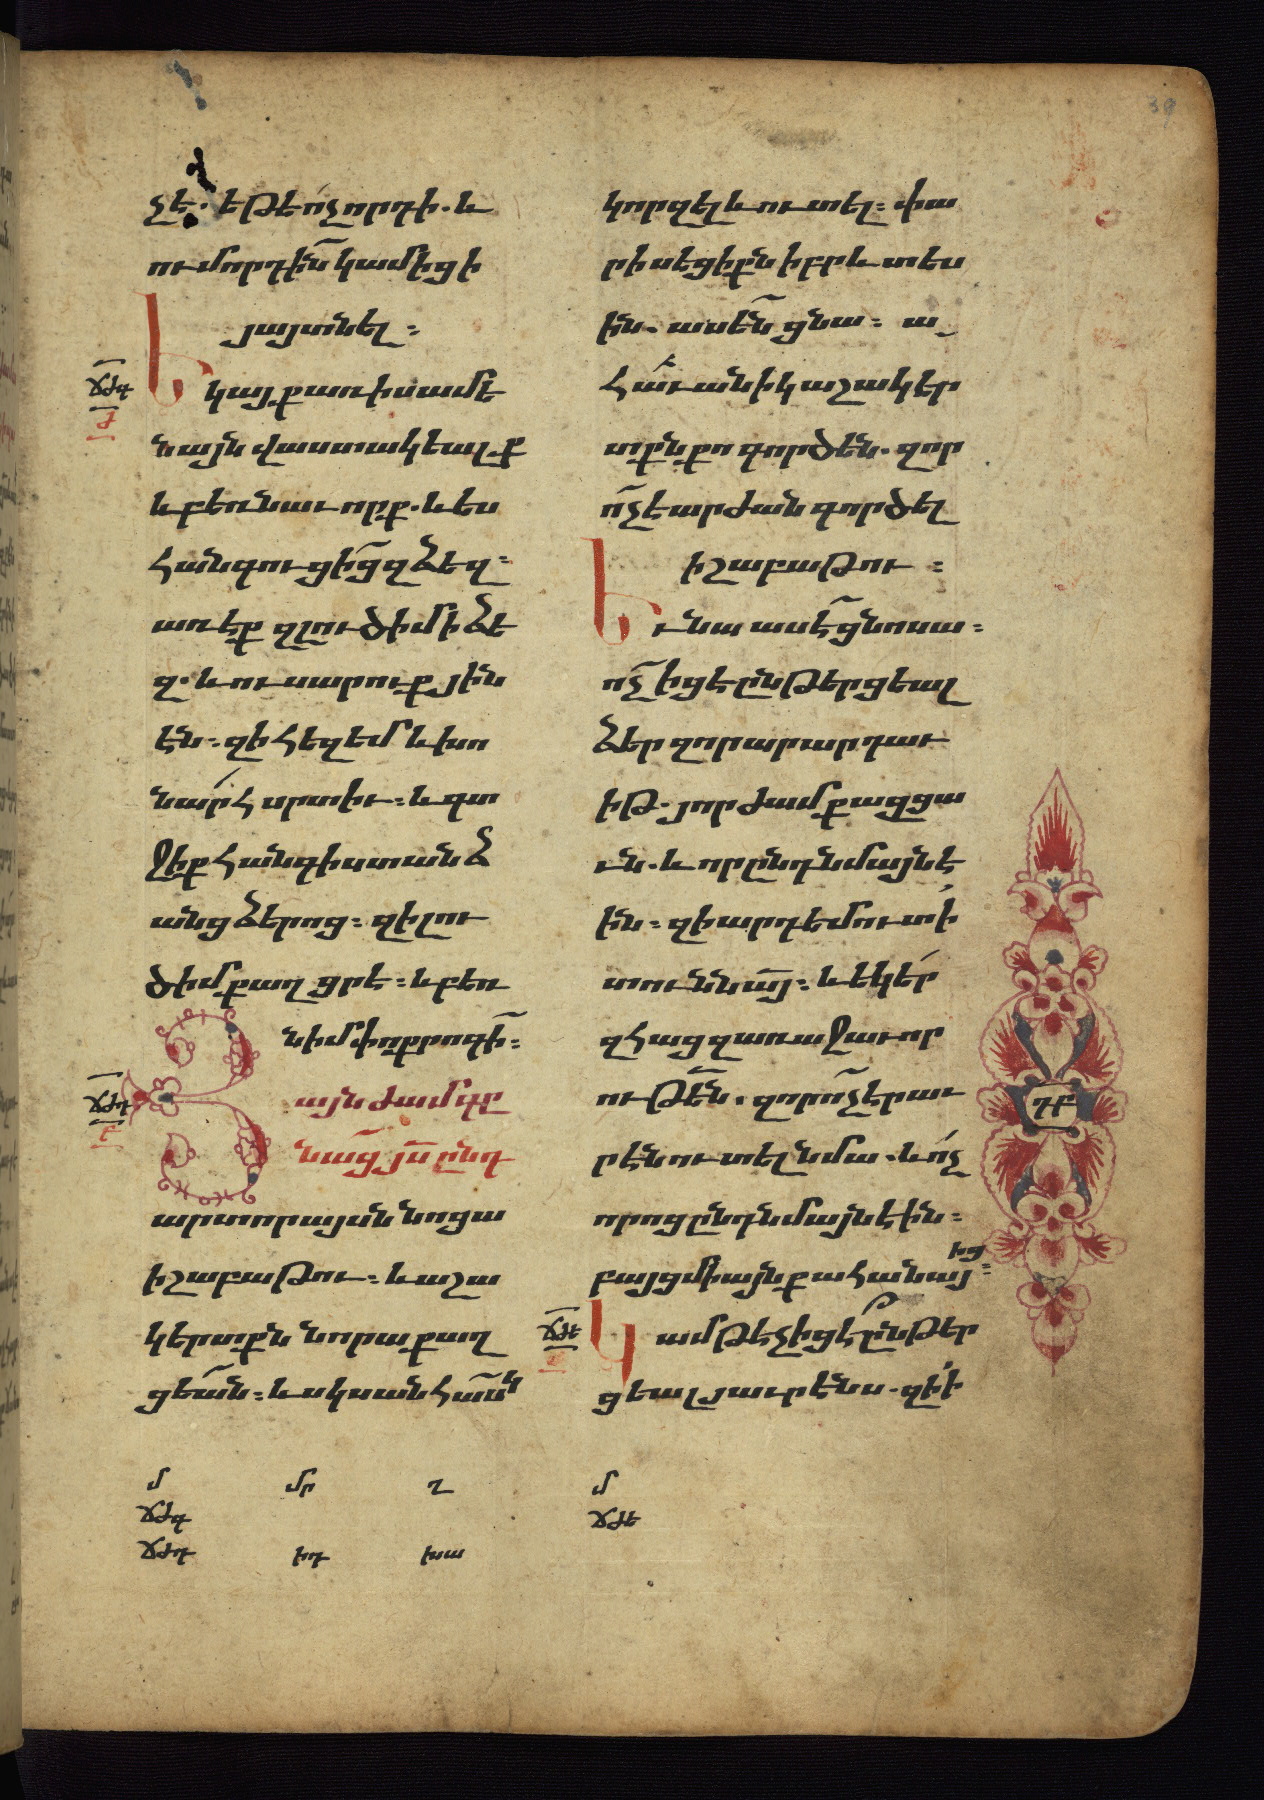 39
չէ. եթե ո՛չ որդի. և
ում որդի՞ն կամիցի
յայտնել։
Եկայք առ իս ամե
նայն վաստակեալք
և բեռնաւորք. և ես
հանգուցի՞ց զձեզ։
առէք զլուծ իմ ի ձե
զ. և ուսարուք յին
էն։ զի հեզ եմ և խո
նա՛րհ սրտիւ։ և գտ
ջիք հանգիստ անձ
անց ձերոց։ զի լու
ծ իմ քաղցր է։ և բեռ
ն իմ փոքրոգի՞։
ՃԺԳ
Ժ
ՃԺԴ
Ե
Յայնժամ գը
նա՞ց յս ընդ
արտորայսն նոցա
ի շաբաթու։ և աշա
կերտքն նորա քաղ
ցեա՞ն։ և սկսան հասկ
կորզել և ուտել։ փա
րիսեցիքն իբրև տես
ին. ասե՞ն ցնա։ ա
հա՛ւանիկ աշակեր
տքն քո գործեն. զոր
ո՞չ է արժան գործել
ի շաբաթու։
Եւ նա ասէ՞ ցնոսա։
ո՞չ իցէ ընթերցեալ
ձեր զոր արար դաւ
իթ. յորժամ քաղցա
ւն. և որ ընդ նմայն է
ին։ զիարդ եմուտ ի՛
տուն նայ։ և եկե՛ր
զհաց զառաջաւոր
ութե՞ն. զոր ո՞չ էր աւ
րէն ուտել նմա. և ո՛չ
որոց ընդ նմայն էին։
բայց միայն քահանայ
ից։
ՃԺԵ
Կամ թէ չիցէ՞ ընթեր
ցեալ յաւրէնս. զի ի՛
ԴԲ
մ մր ղ
ՃԺԳ
ՃԺԴ իդ խա
մ
ՃԺԵ